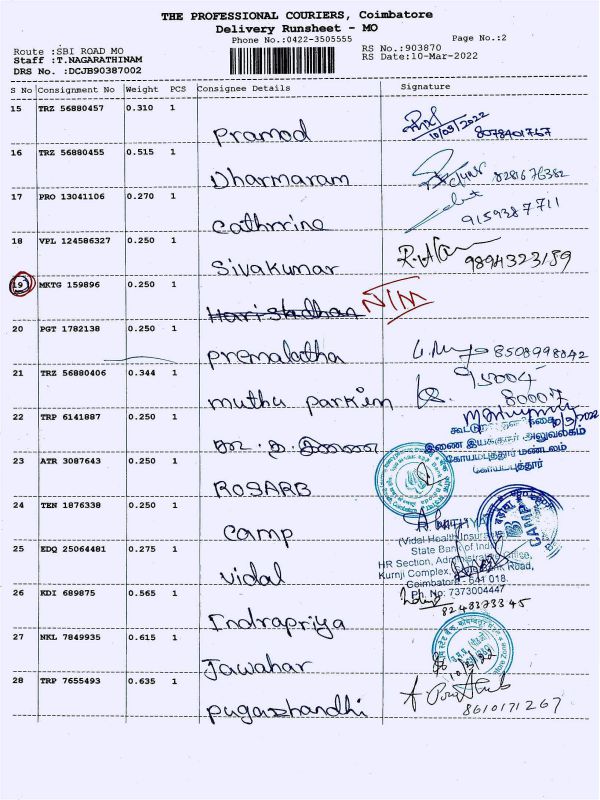 THE PROFESSIONAL COURIERS, Coimbatore
Delivery Runsheet - MO
Phone No.:0422-3505555
Page No.:2
Route :SBI ROAD MO
RS No.:903870
Staff :T.NAGARATHINAM
RS Date:10-Mar-2022
DRS No. :DCJB90387002
S No Consignment No Weight PCS Consignee Details Signature
15 TRZ 56880457 0.310 1 Pramod 10/03/2022 8078401767
16 TRZ 56880455 0.515 1 Dharmaram 8281676382
17 PRO 13041106 0.270 1 Cathrrine 9159387711
18 VPL 124586327 0.250 1 Sivakumar 9894323189
19 MKTG 159896 0.250 1 NIM
20 PGT 1782138 0.250 1 Premalatha 8508998842
21 TRZ 56880406 0.344 1 muthu parkim 95004
80007
22 TRP 6141887 0.250 1
இணை இயக்குநர் அலுவலகம்
கோயமபுத்தூர் மண்டலம்
கோயமபுத்தூர்
23 ATR 3087643 0.250 1 ROSARB
24 TEN 1876338 0.250 1 Camp
CAMP
(Vidal Health Insurance
State Bank of India
25 EDQ 25064481 0.275 1 Vidal
HR Section, Administrative Office,
Kurnji Complex, Road,
Coimbatore - 641 018.
Ph. No: 7373004447
26 KDI 689875 0.565 1 Indrapriya 8248373345
27 NKL 7849935 0.615 1 Jawahar 10/3/22
28 TRP 7655493 0.635 1 Pugazhandhi 8610171267